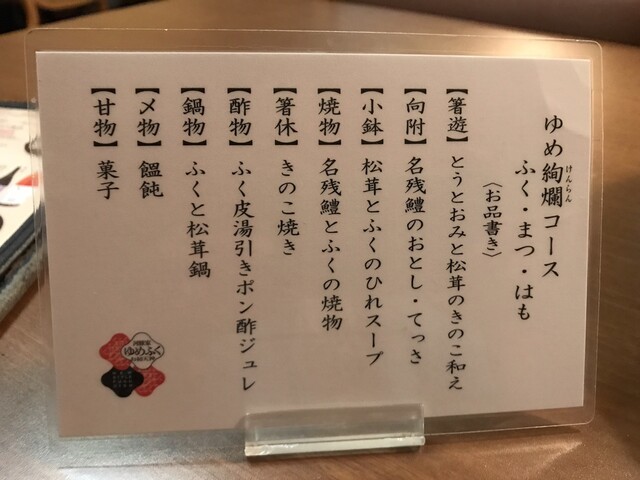 ゆめ絢爛コース
けんらん
ふく・まつ・はも
〈お品書き〉
【箸遊】とうとおみと松茸のきのこ和え
【向附】名残鱧のおとし・てっさ
【小鉢】松茸とふくのひれスープ
【焼物】名残鱧とふくの焼物
【箸休】きのこ焼き
【酢物】ふく皮湯引きポン酢ジュレ
【鍋物】ふくと松茸鍋
【〆物】饂飩
【甘物】菓子
ゆめふく